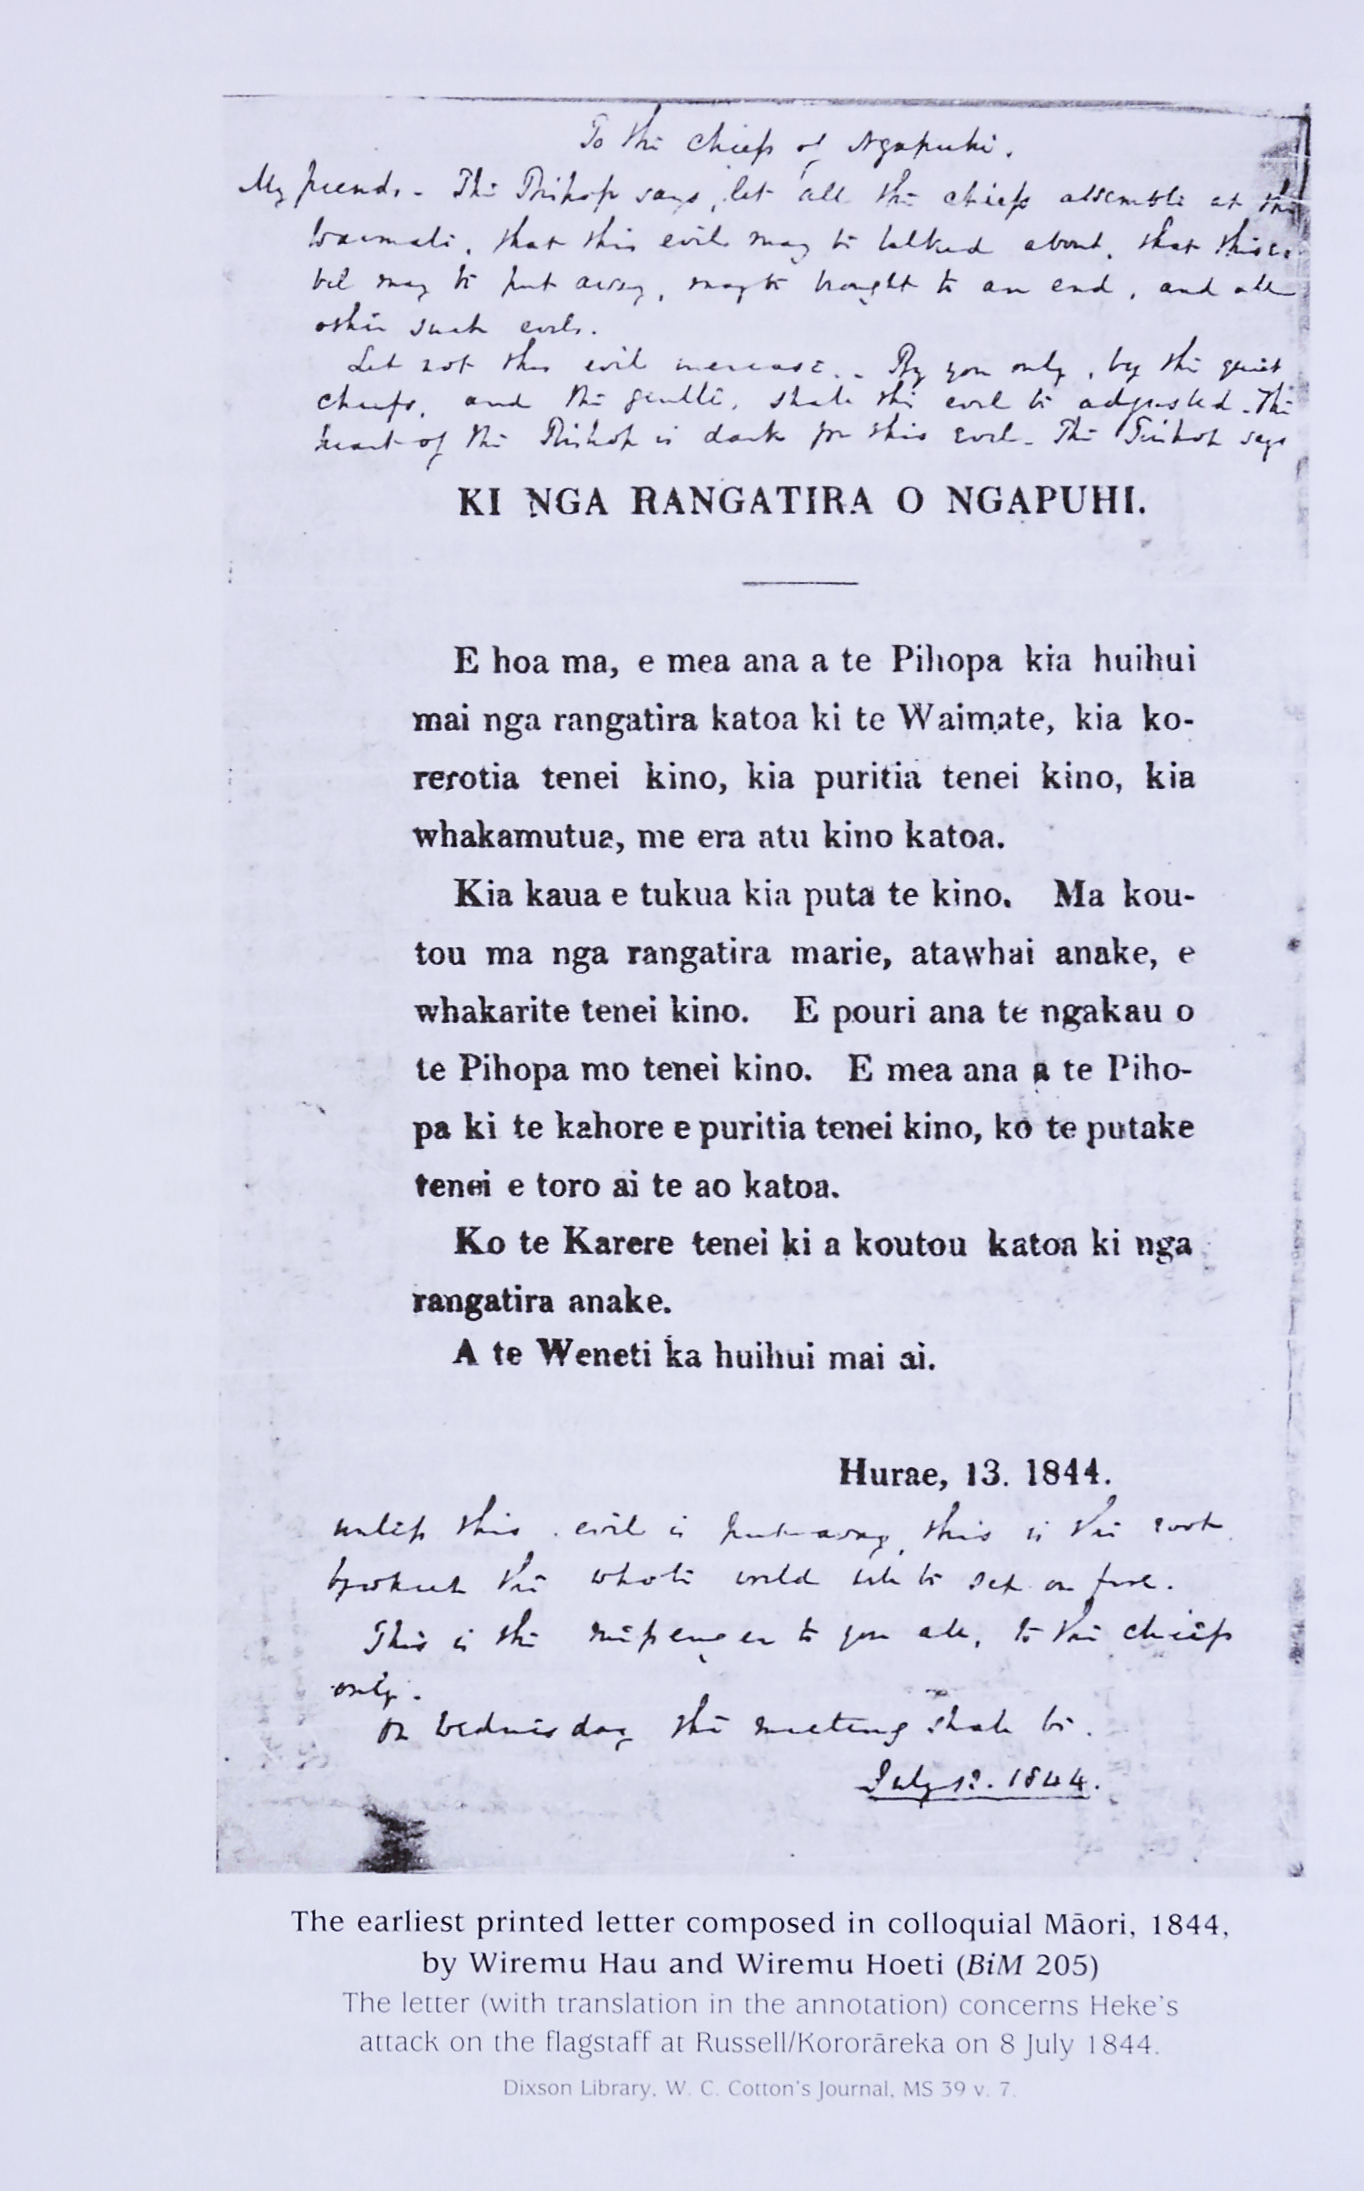 To the Chiefs of Ngapuhi.
My friends - The Bishop says, let all the chiefs assemble at the
Waimate, that this evil may be talked about, that this e-
vil may be put away, may be brought to an end, and all
other such evils.
Let not this evil increase. - By you only, by the quiet
chiefs, and the gentle, shall this evil be adjusted. The
heart of the Bishop is dark for this evil. The Bishop says
KI NGA RANGATIRA O NGAPUHI.
E hoa ma, e mea ana a te Pihopa kia huihui
mai nga rangatira katoa ki te Waimate, kia ko-
rerotia tenei kino, kia puritia tenei kino, kia
whakamutua, me era atu kino katoa.
Kia kaua e tukua kia puta te kino. Ma kou-
tou ma nga rangatira marie, atawhai anake, e
whakarite tenei kino. E pouri ana te ngakau o
te Pihopa mo tenei kino. E mea ana a te Piho-
pa ki te kahore e puritia tenei kino, ko te putake
tenei e toro ai te ao katoa.
Ko te Karere tenei ki a koutou katoa ki nga
rangatira anake.
A te Weneti ka huihui mai ai.
Hurae, 13. 1844.
unless this evil is put away, this is the root
by which the whole world will be set on fire.
This is the messenger to you all, to the chiefs
only.
On Wednesday the meeting shall be.
July 13. 1844.
The earliest printed letter composed in colloquial Māori, 1844,
by Wiremu Hau and Wiremu Hoeti (BiM 205)
The letter (with translation in the annotation) concerns Heke's
attack on the flagstaff at Russell/Kororāreka on 8 July 1844.
Dixson Library, W. C. Cotton's Journal, MS 39 v. 7.